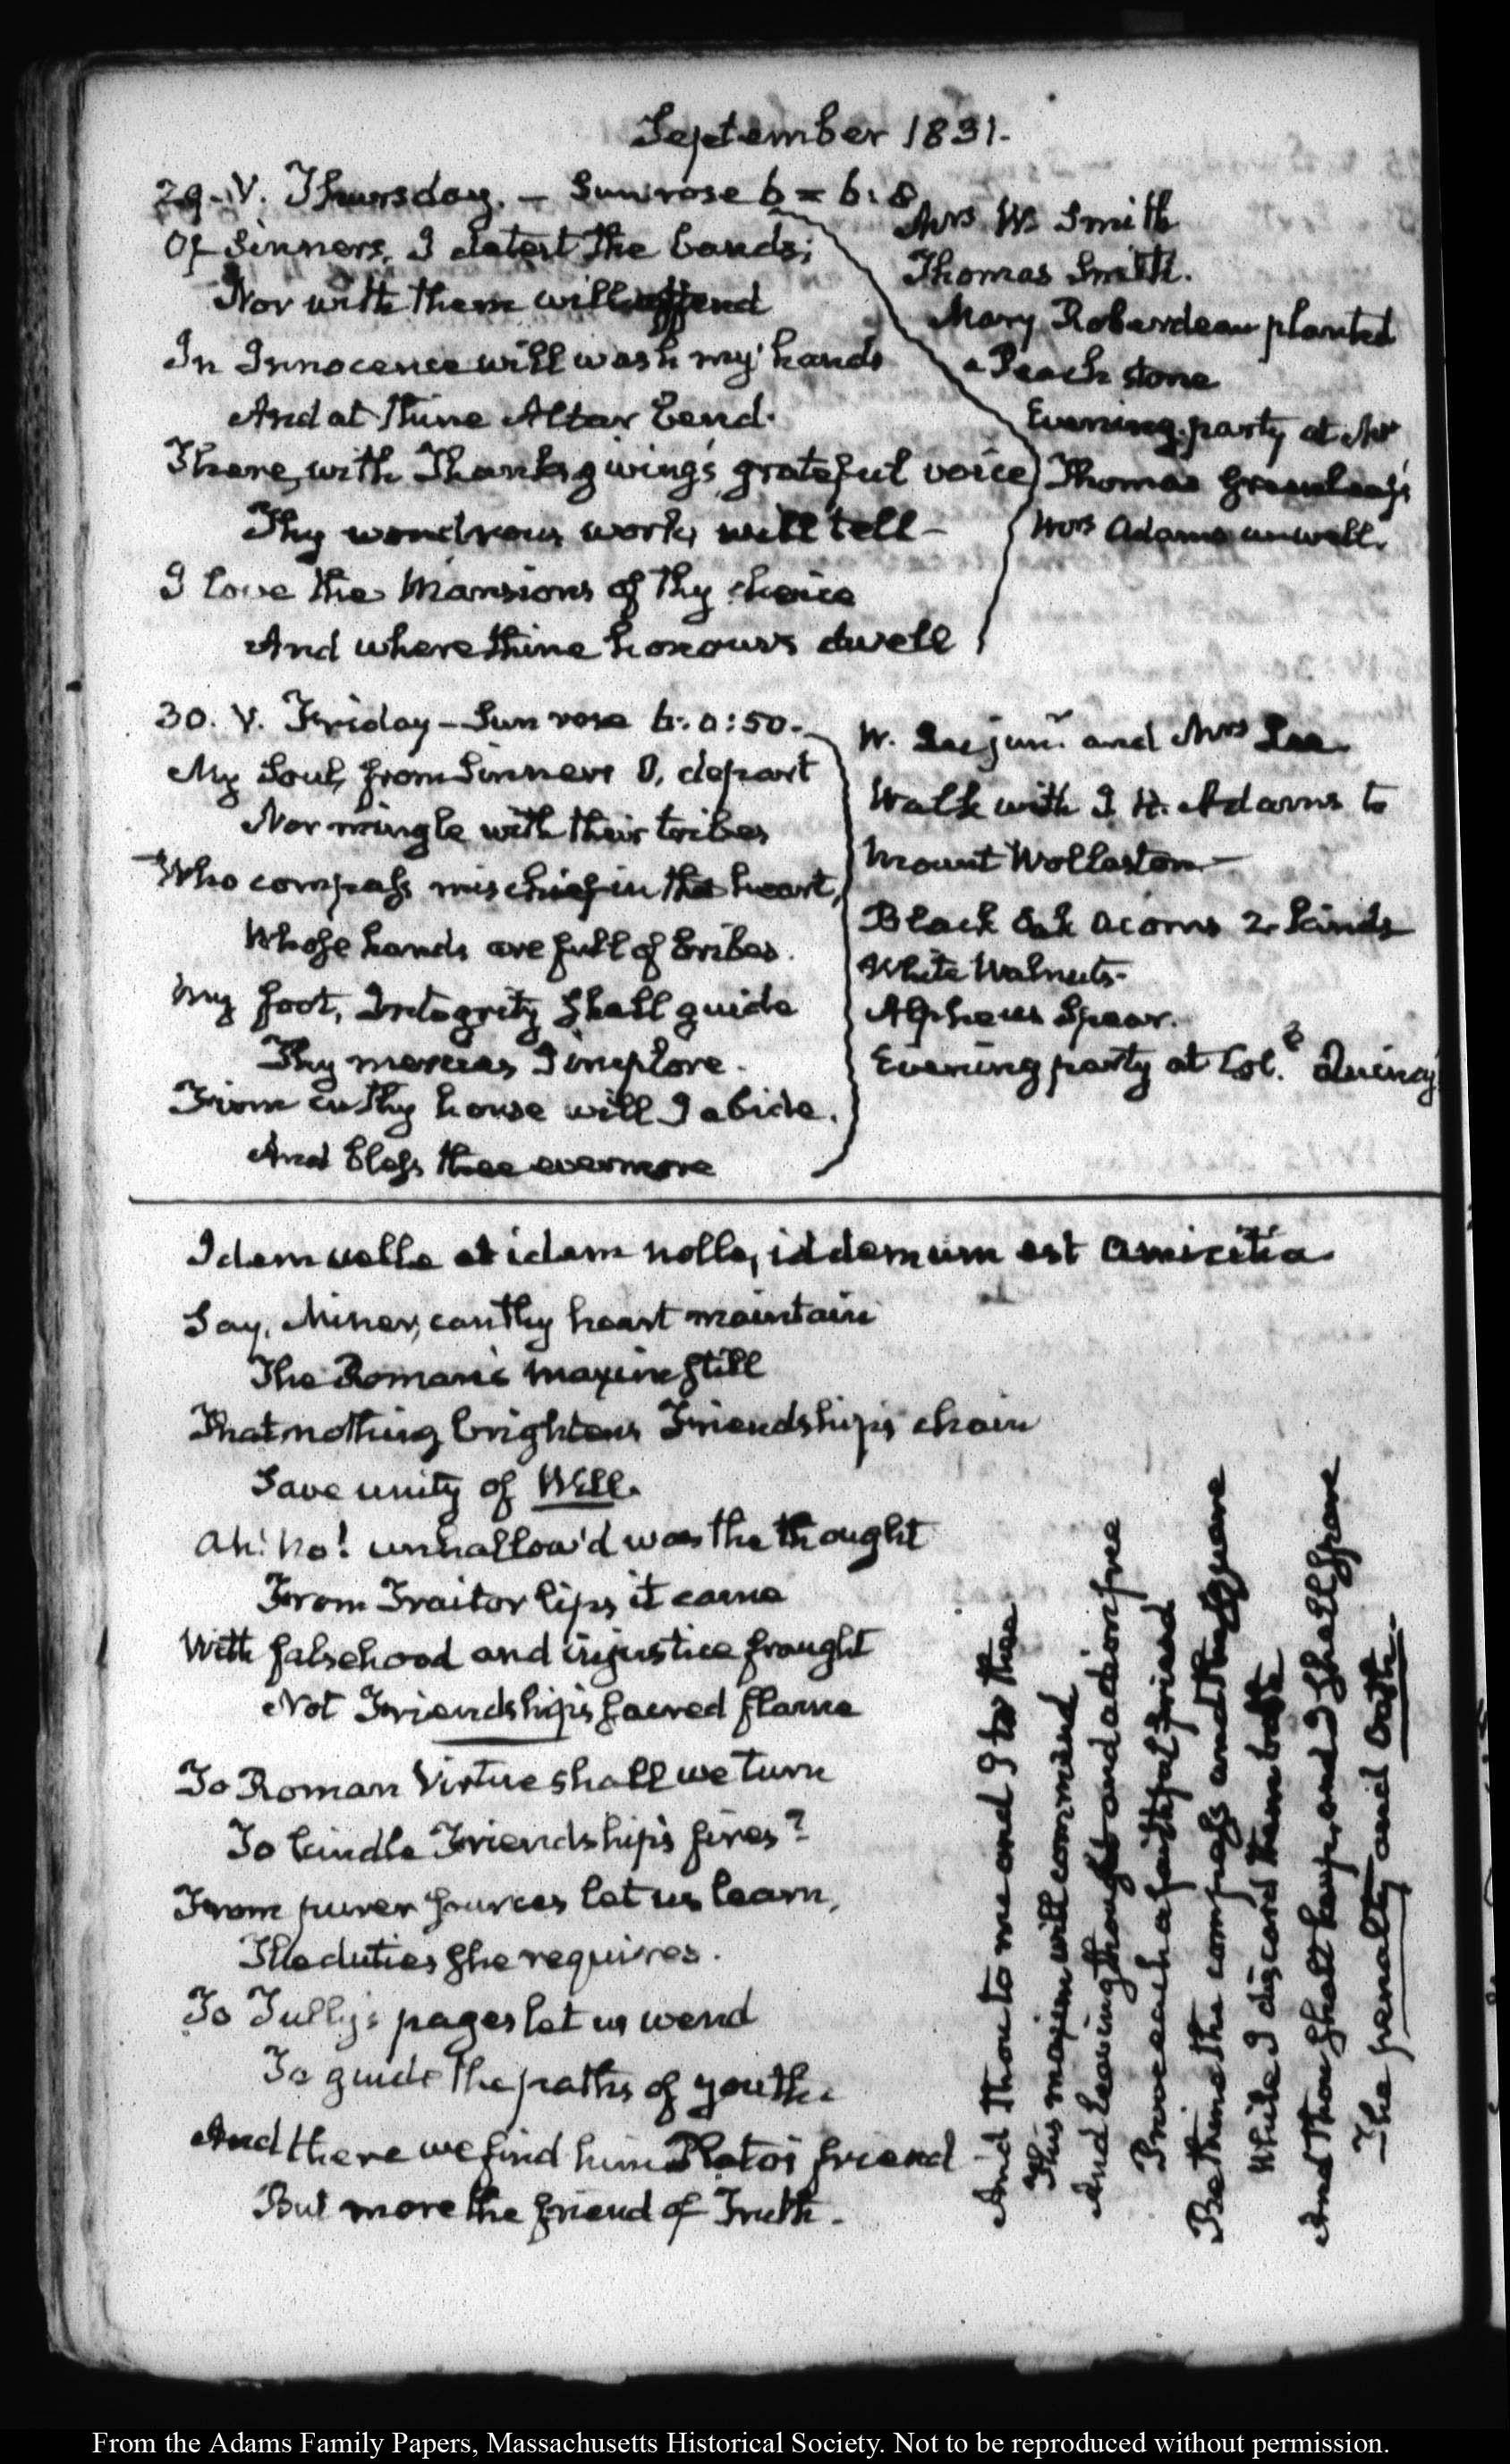 September 1831.
29. V. Thursday. — Sun rose 6 = 6:8
Of Sinners, I detest the bands;
Nor with them will offend
In Innocence will wash my hands
And at thine Altar bend.
There, with Thanksgiving's grateful voice
Thy wondrous works will tell —
I love the Mansions of thy choice
And where thine honours dwell
Mrs W. Smith
Thomas Smith.
Mary Roberdeau planted
a Peach stone
Evening party at Mr
Thomas Greenleaf's
Mrs Adams unwell.
30. V. Friday — Sun rose 6:0:50.
My Soul, from Sinners O, depart
Nor mingle with their tribes
Who compass mischief in the heart,
Whose hands are full of bribes.
My foot, Integrity shall guide
Thy mercies I implore.
Firm in thy house will I abide.
And bless thee evermore
W. Lee junr. and Mrs Lee
Walk with I. H. Adams to
Mount Wollaston —
Black Oak acorns 2 kinds
White Walnuts.
Alpheus Spear.
Evening party at Col. Quincy
Idem velle et idem nolle, id demum est amicitia.
Say, Miner, can thy heart maintain
The Roman's maxim still
That nothing brightens Friendship's chain
Save unity of Will.
Ah! no! unhallow'd was the thought
From Traitor lips it came
With falsehood and injustice fraught
Not Friendship's sacred flame
To Roman Virtue shall we turn
To kindle Friendship's fires?
From purer sources let us learn,
The duties she requires.
To Tully's pages let us wend
To guide the paths of youth.
And there we find him Plato's friend
But more the friend of Truth.
And thou to me and I to thee
This maxim will commend
And leaving thought and action free
Prove each a faithful friend
Be thine the compass and the square
While I discard them both
And thou shalt keep, and I shall spare
The penalty and Oath.
From the Adams Family Papers, Massachusetts Historical Society. Not to be reproduced without permission.